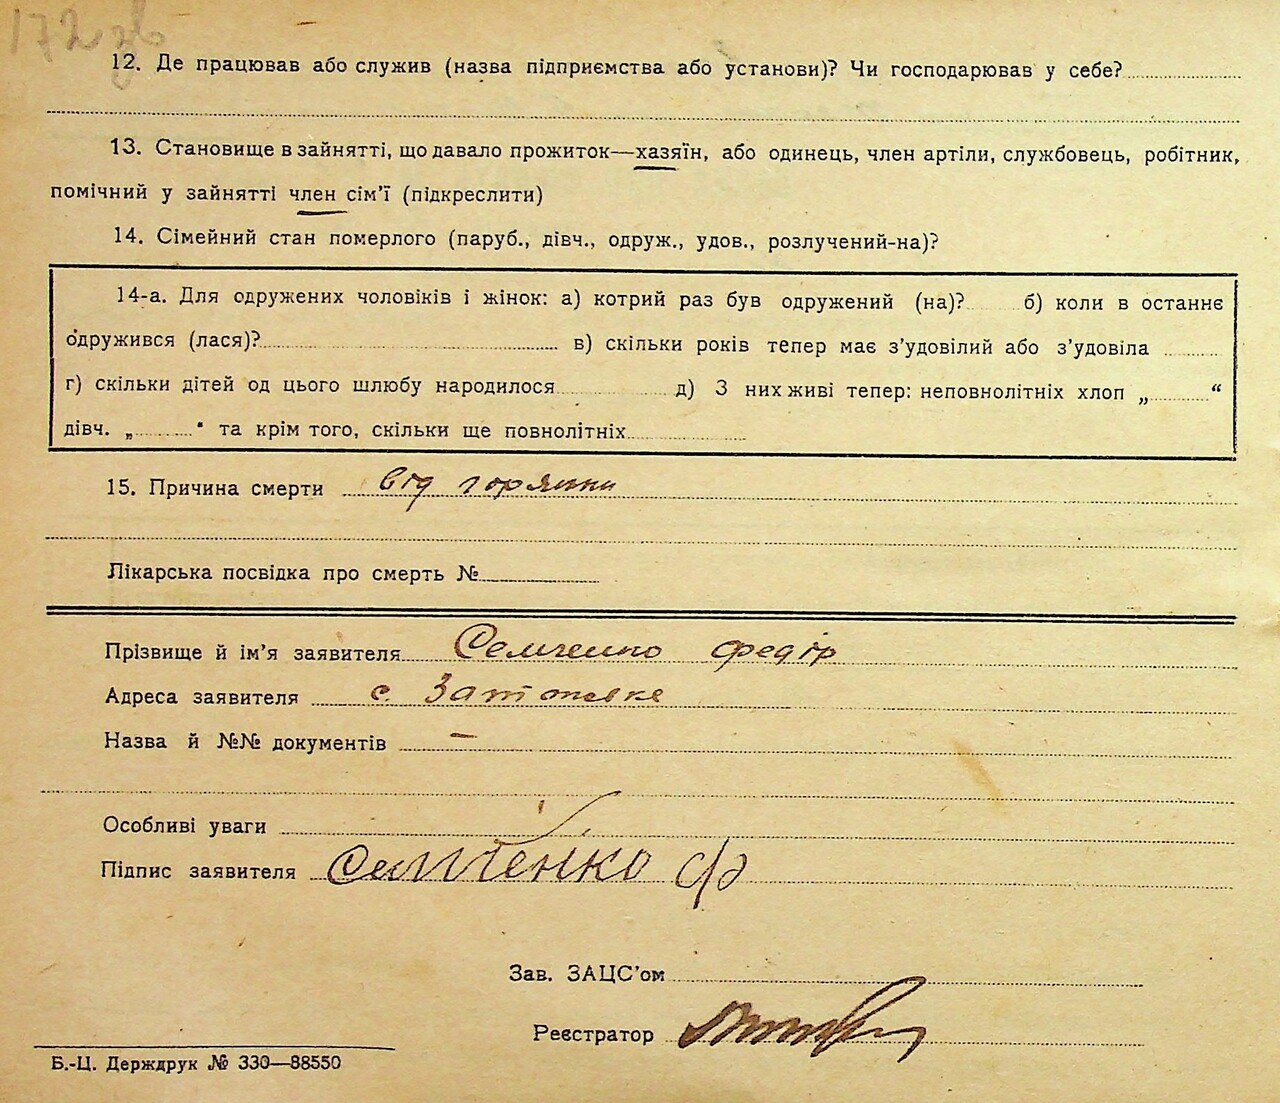 172 зв
12. Де працював або служив (назва підприємства або установи)? Чи господарював у себе?
13. Становище в зайнятті, що давало прожиток—хазяїн, або одинець, член артіли, службовець, робітник,
помічний у зайнятті член сім'ї (підкреслити)
14. Сімейний стан померлого (паруб., дівч., одруж., удов., розлучений-на)?
14-а. Для одружених чоловіків і жінок: а) котрий раз був одружений (на)? б) коли в останнє
одружився (лася)? в) скільки років тепер має з'удовілий або з'удовіла
г) скільки дітей од цього шлюбу народилося д) З них живі тепер: неповнолітніх хлоп „ “
дівч. „ “ та крім того, скільки ще повнолітніх
15. Причина смерти від горячки
Лікарська посвідка про смерть №
Прізвище й ім'я заявителя Семченко Федір
Адреса заявителя с.
Назва й №№ документів —
Особливі уваги
Підпис заявителя Семченко Ф
Зав. ЗАЦС'ом
Реєстратор
Б.-Ц. Держдрук № 330—88550